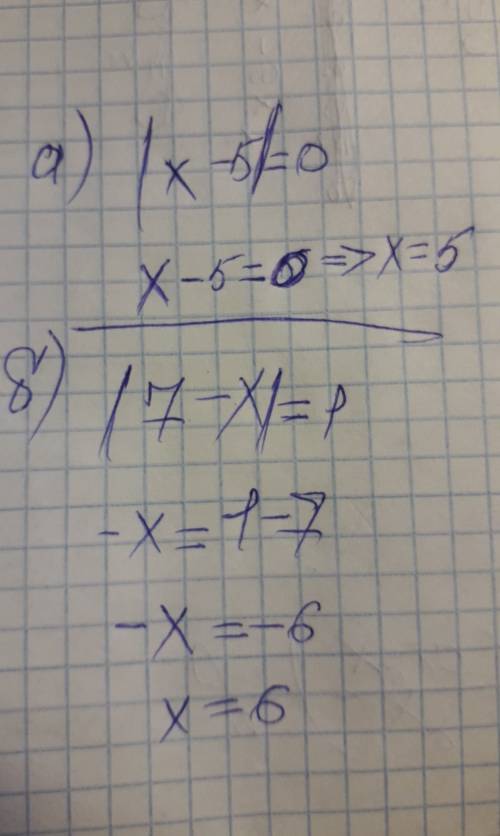 а) |x - 5| = 0
x - 5 = 0 => x = 5
б) |7 - x| = 1
-x = 1 - 7
-x = -6
x = 6